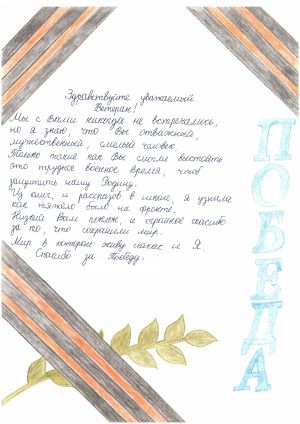 Здравствуйте уважаемый
Ветеран!
Мы с Вами никогда не встречались,
но я знаю, что Вы отважный,
мужественный, смелый человек.
Только такие как Вы смогли выстоять
это трудное военное время, чтоб
защитить нашу Родину.
Из книг, и рассказов в школе, я узнала
как тяжело было на фронте.
Низкий Вам поклон, и огромное спасибо
за то, что сохранили мир.
Мир в котором живу сейчас и Я.
Спасибо за Победу.
ПОБЕДА